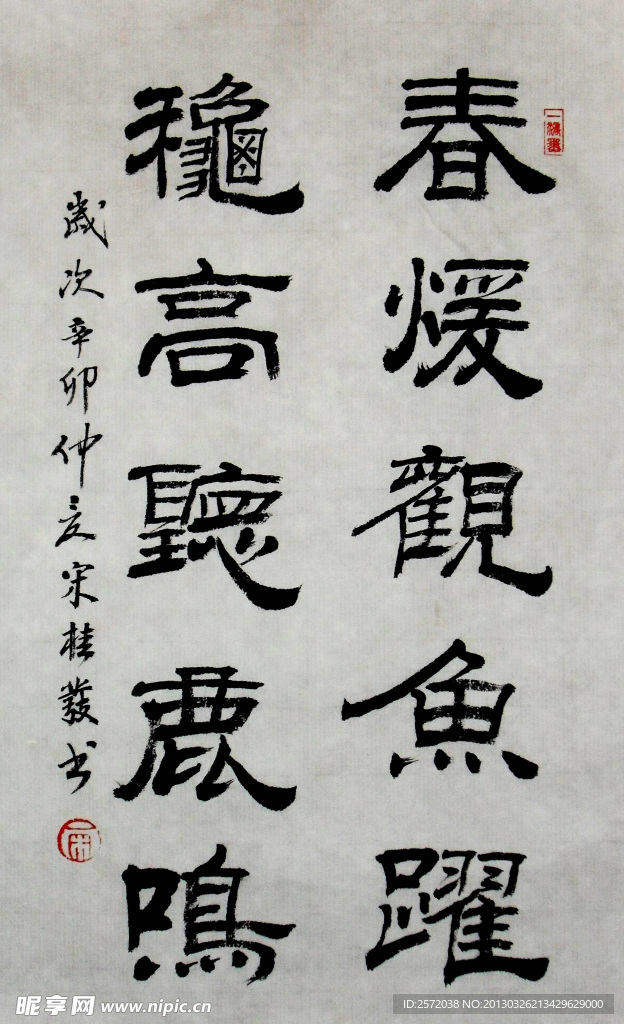 春煖觀魚躍
龝高聽鹿鳴
歲次辛卯仲夏宋桂發书
昵享网 www.nipic.cn
ID:2572038 NO:20130326213429629000